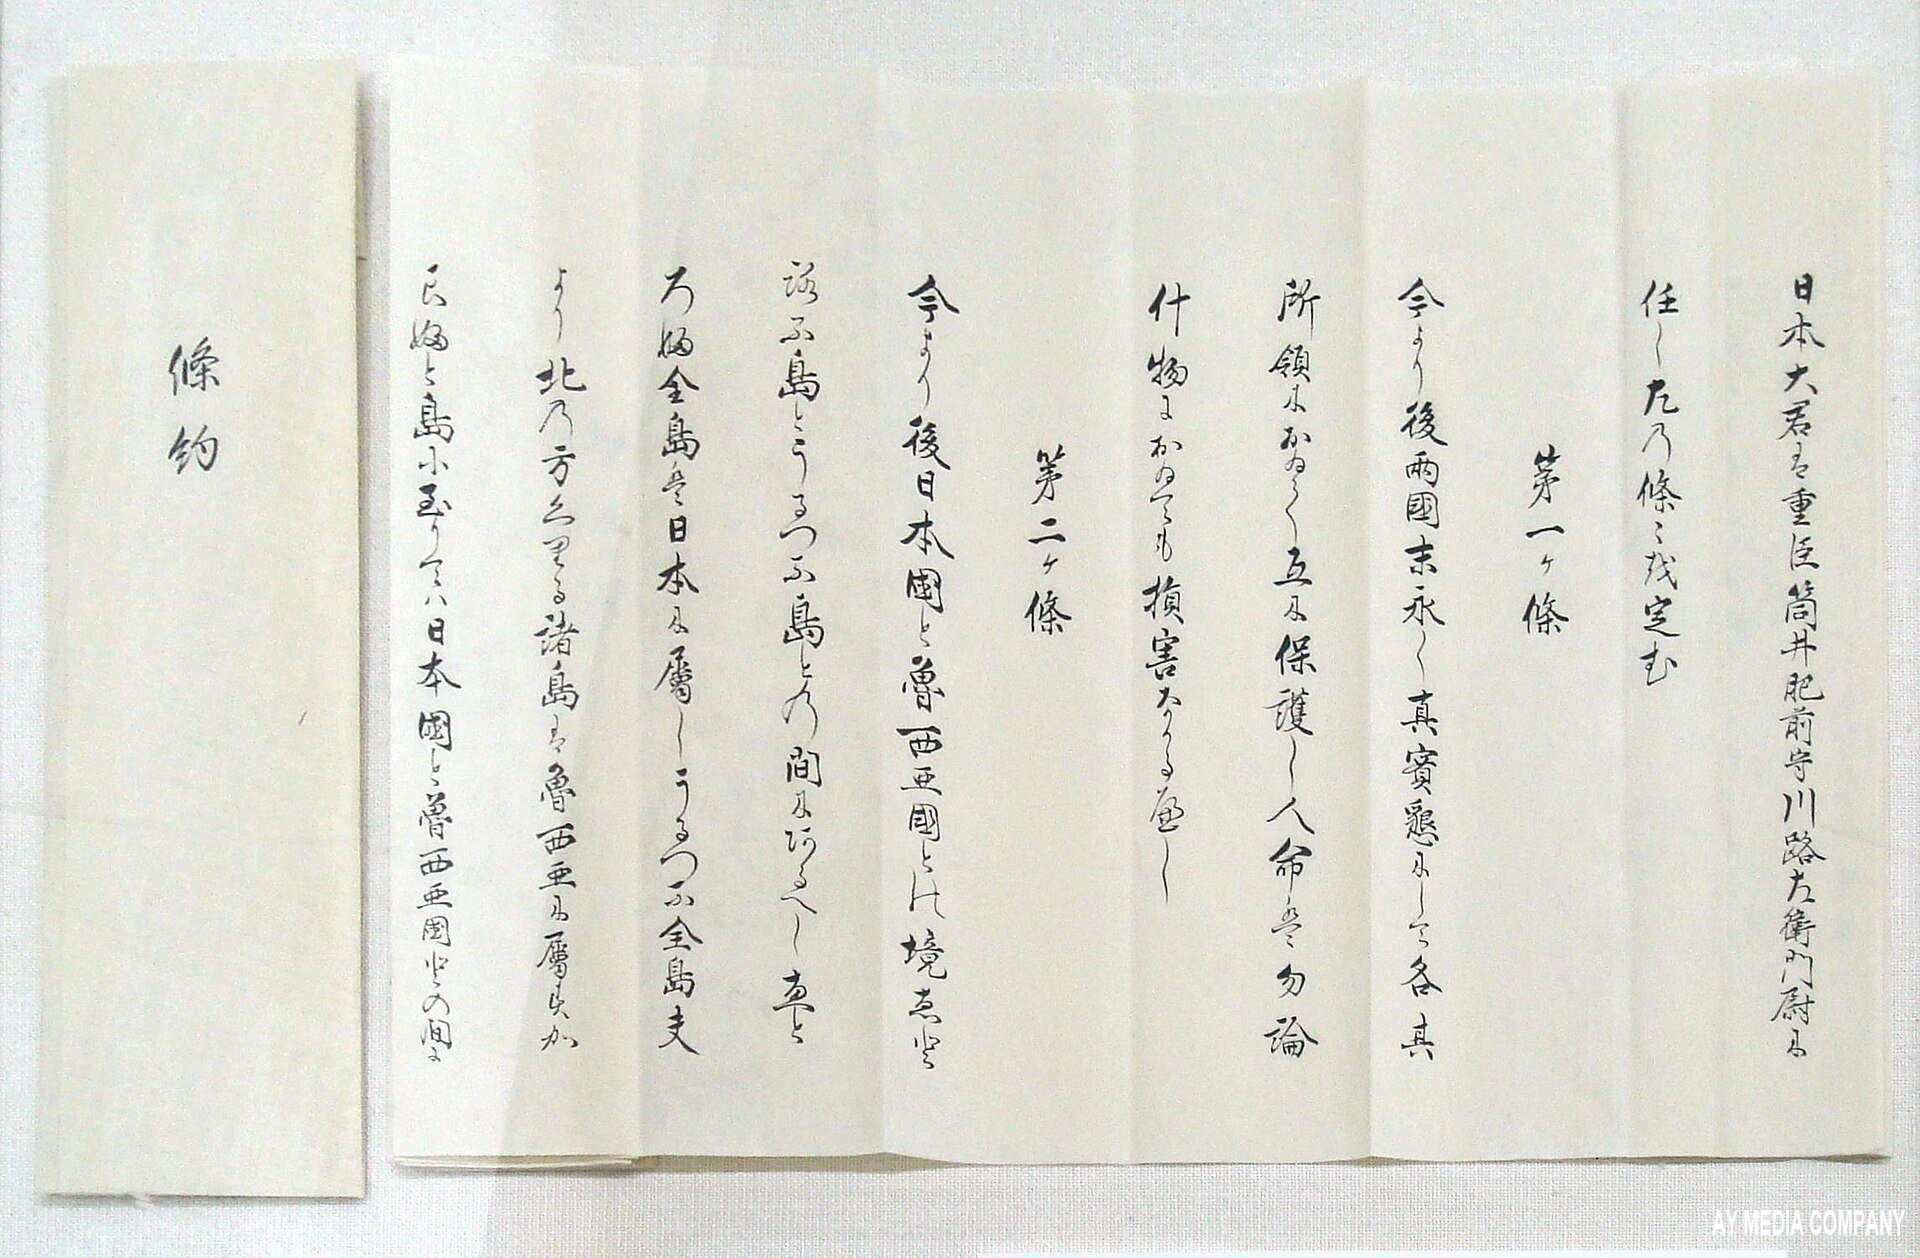 日本大君は重臣筒井肥前守川路左衛門尉に
任し左の條々を定む
第一ヶ條
今より後兩國末永く真實懇にして各其
所領におゐて互に保護し人命は勿論
什物におゐても損害なかるへし
第二ヶ條
今より後日本國と魯西亜國との境ゑと
ろふ島とうるつふ島との間にあるへしゑと
ろふ全島は日本に属しうるつふ全島夫
より北の方クリル諸島は魯西亜に属すか
らふと島に至りてハ日本國と魯西亜國との間に
條約
AY MEDIA COMPANY